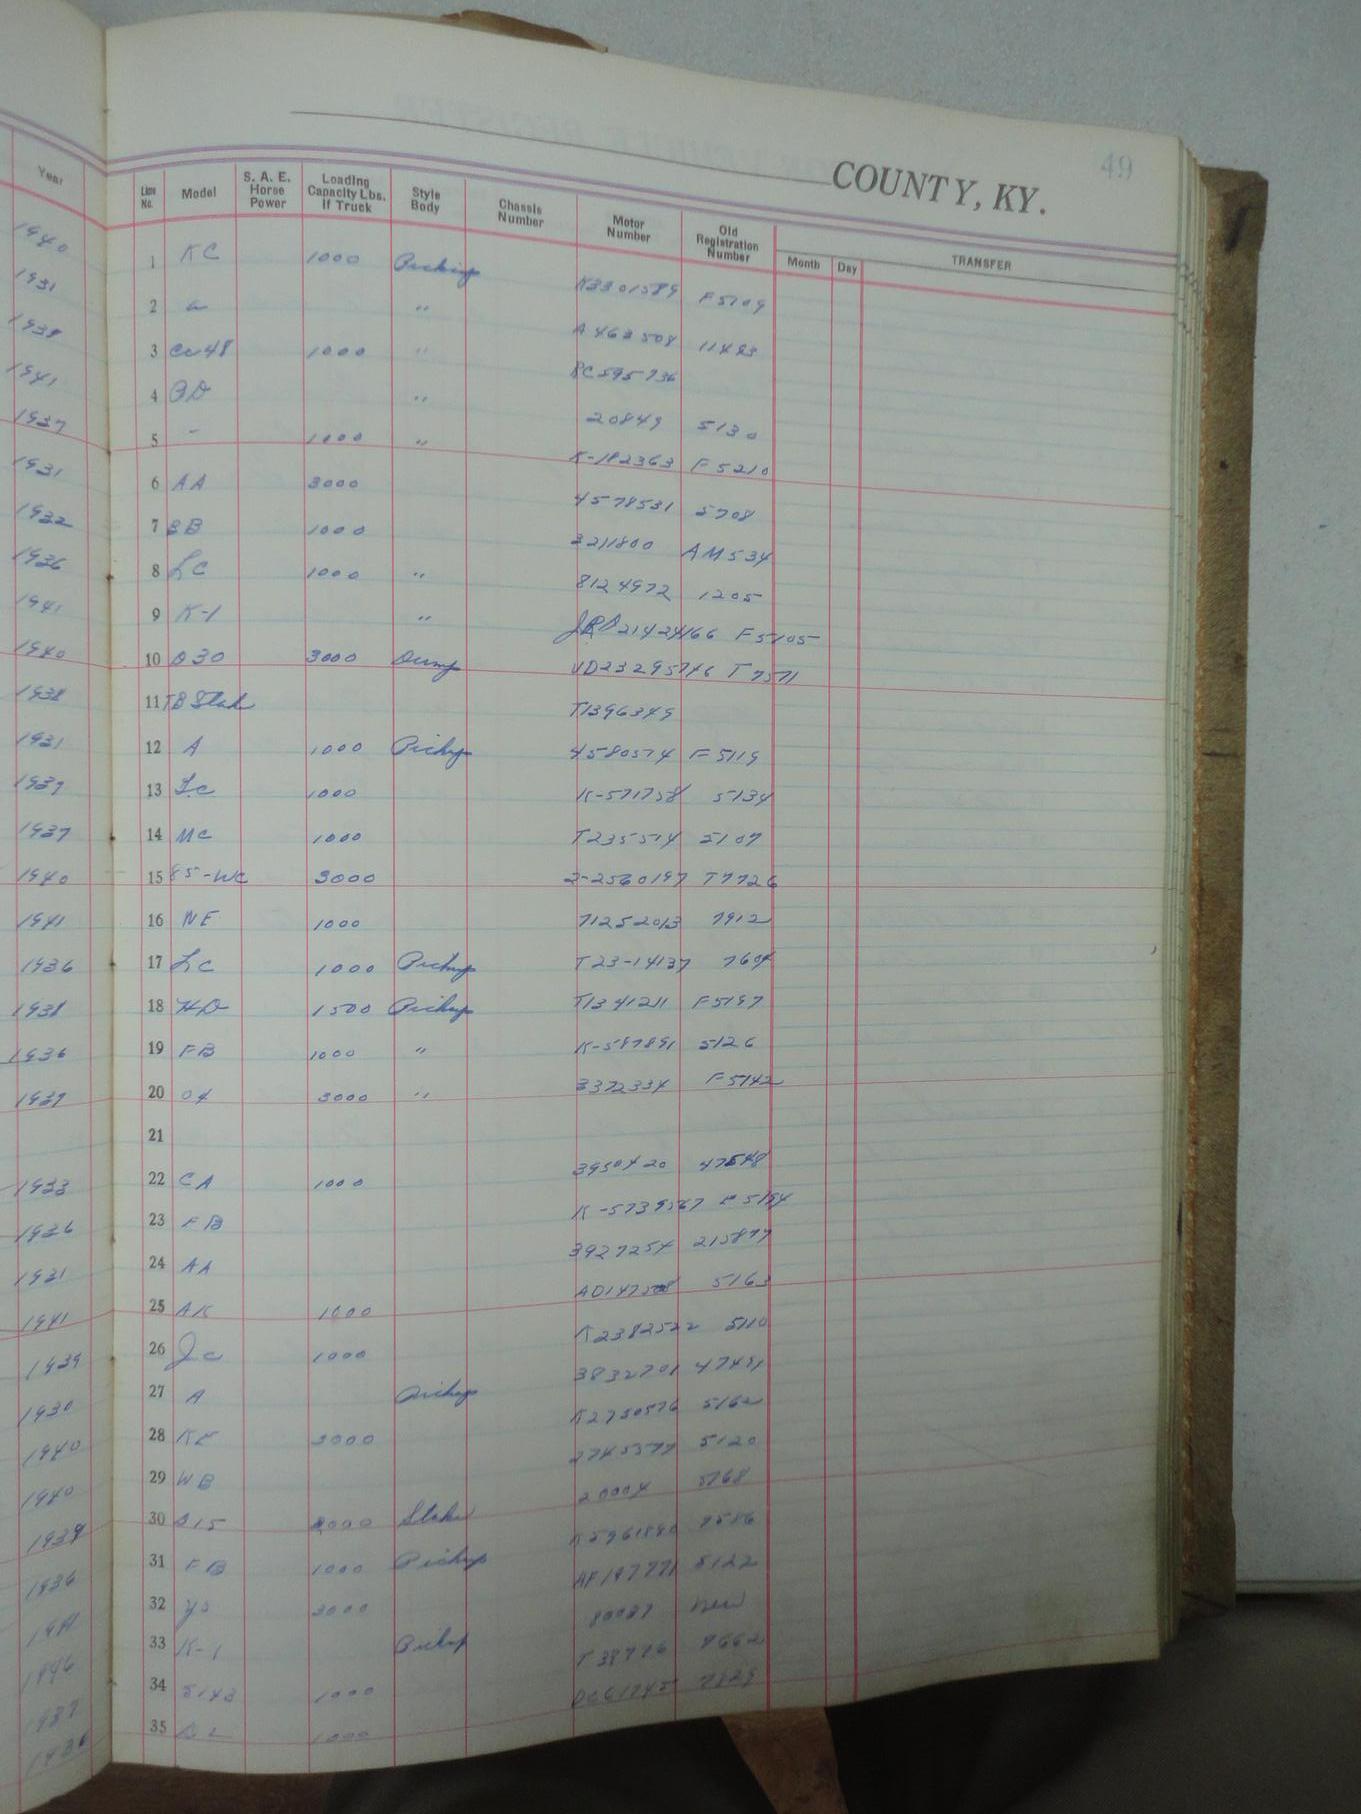 49
COUNTY, KY.
Year Line No. Model S. A. E. Horse Power Loading Capacity Lbs. If Truck Style Body Chassis Number Motor Number Old Registration Number Month Day TRANSFER
1940 1 KC 1000 Pickup K3301589 F5109
1931 2 " A463508 11483
1938 3 1000 " 8C595736
1941 4 " 20849 5130
1937 5 - 1000 " K-182363 F5210
1931 6 AA 3000 4578531 5708
1932 7 BB 1000 3211800 AM534
1936 8 LC 1000 " 8124972 1205
1941 9 K-1 " F5105
1940 10 D30 3000 Dump VD23295746 T7571
1938 11 TB Stake T1396349
1931 12 A 1000 Pickup 4580574 F5119
1937 13 1000 K-571758 5134
1937 14 MC 1000 T235514 5107
1940 15 85-WC 3000 2-2560197 T7726
1941 16 NE 1000 71252013 7912
1936 17 LC 1000 Pickup T23-14137 7604
1938 18 HD 1500 Pickup T1341211 F5197
1936 19 FB 1000 " K-587891 5126
1939 20 3000 " 3372334 F5142
21
1933 22 CA 1000 3950420
1936 23 FB
1931 24 AA 3927254 215877
1941 25 AK 1000 5163
1939 26 Jc 1000 K2382522 5110
1930 27 A Pickup 3832701 47491
1940 28 KF 3000 K2750576 5162
1940 29 WB 2745377 5120
1939 30 D15 Stake 20004 5768
1936 31 FB 1000 Pickup
1941 32 3000 5122
1946 33 K-1 Pickup 80027 New
1937 34 1000 T38776
1936 35 1000